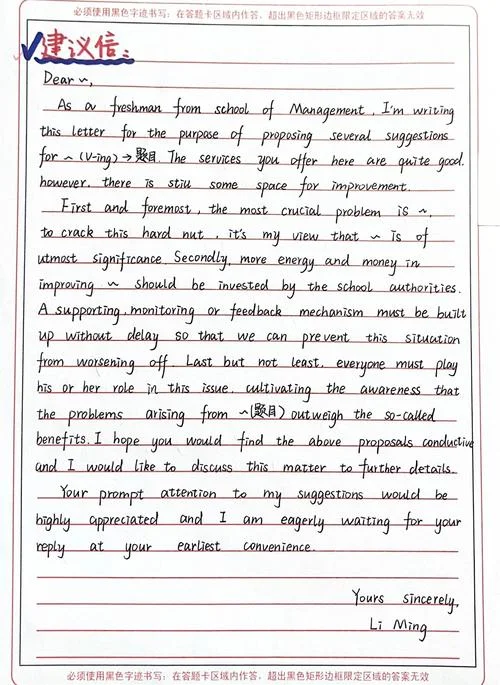 必须使用黑色字迹书写：在答题卡区域内作答，超出黑色矩形边框限定区域的答案无效
✓建议信：
Dear ~,
As a freshman from school of Management, I'm writing
this letter for the purpose of proposing several suggestions
for ~ (V-ing) → 题目. The services you offer here are quite good.
however, there is still some space for improvement.
First and foremost, the most crucial problem is ~,
to crack this hard nut, it's my view that ~ is of
utmost significance. Secondly, more energy and money in
improving ~ should be invested by the school authorities.
A supporting, monitoring or feedback mechanism must be built
up without delay so that we can prevent this situation
from worsening off. Last but not least, everyone must play
his or her role in this issue, cultivating the awareness that
the problems arising from ~(题目) outweigh the so-called
benefits. I hope you would find the above proposals conductive
and I would like to discuss this matter to further details.
Your prompt attention to my suggestions would be
highly appreciated and I am eagerly waiting for your
reply at your earliest convenience.
Yours sincerely,
Li Ming
必须使用黑色字迹书写：在答题卡区域内作答，超出黑色矩形边框限定区域的答案无效